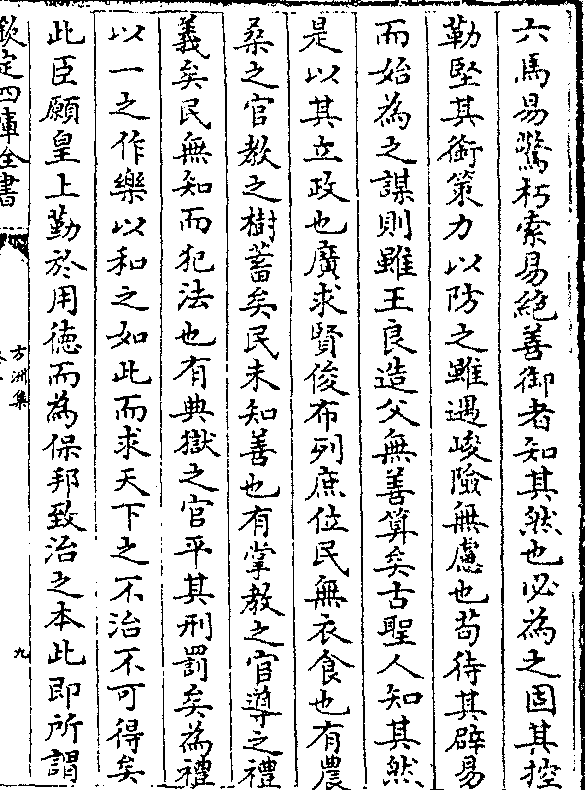 六馬易驚朽索易絕善御者知其然也必為之固其控
勒堅其銜策力以防之雖遇峻險無慮也苟待其辟易
而始為之謀則雖王良造父無善算矣古聖人知其然
是以其立政也廣求賢俊布列庶位民無衣食也有農
桑之官教之樹蓄矣民未知善也有掌教之官導之禮
義矣民無知而犯法也有典獄之官平其刑罰矣為禮
以一之作樂以和之如此而求天下之不治不可得矣
此臣願皇上勤於用徳而為保邦致治之本此即所謂
欽定四庫全書
方洲集
九